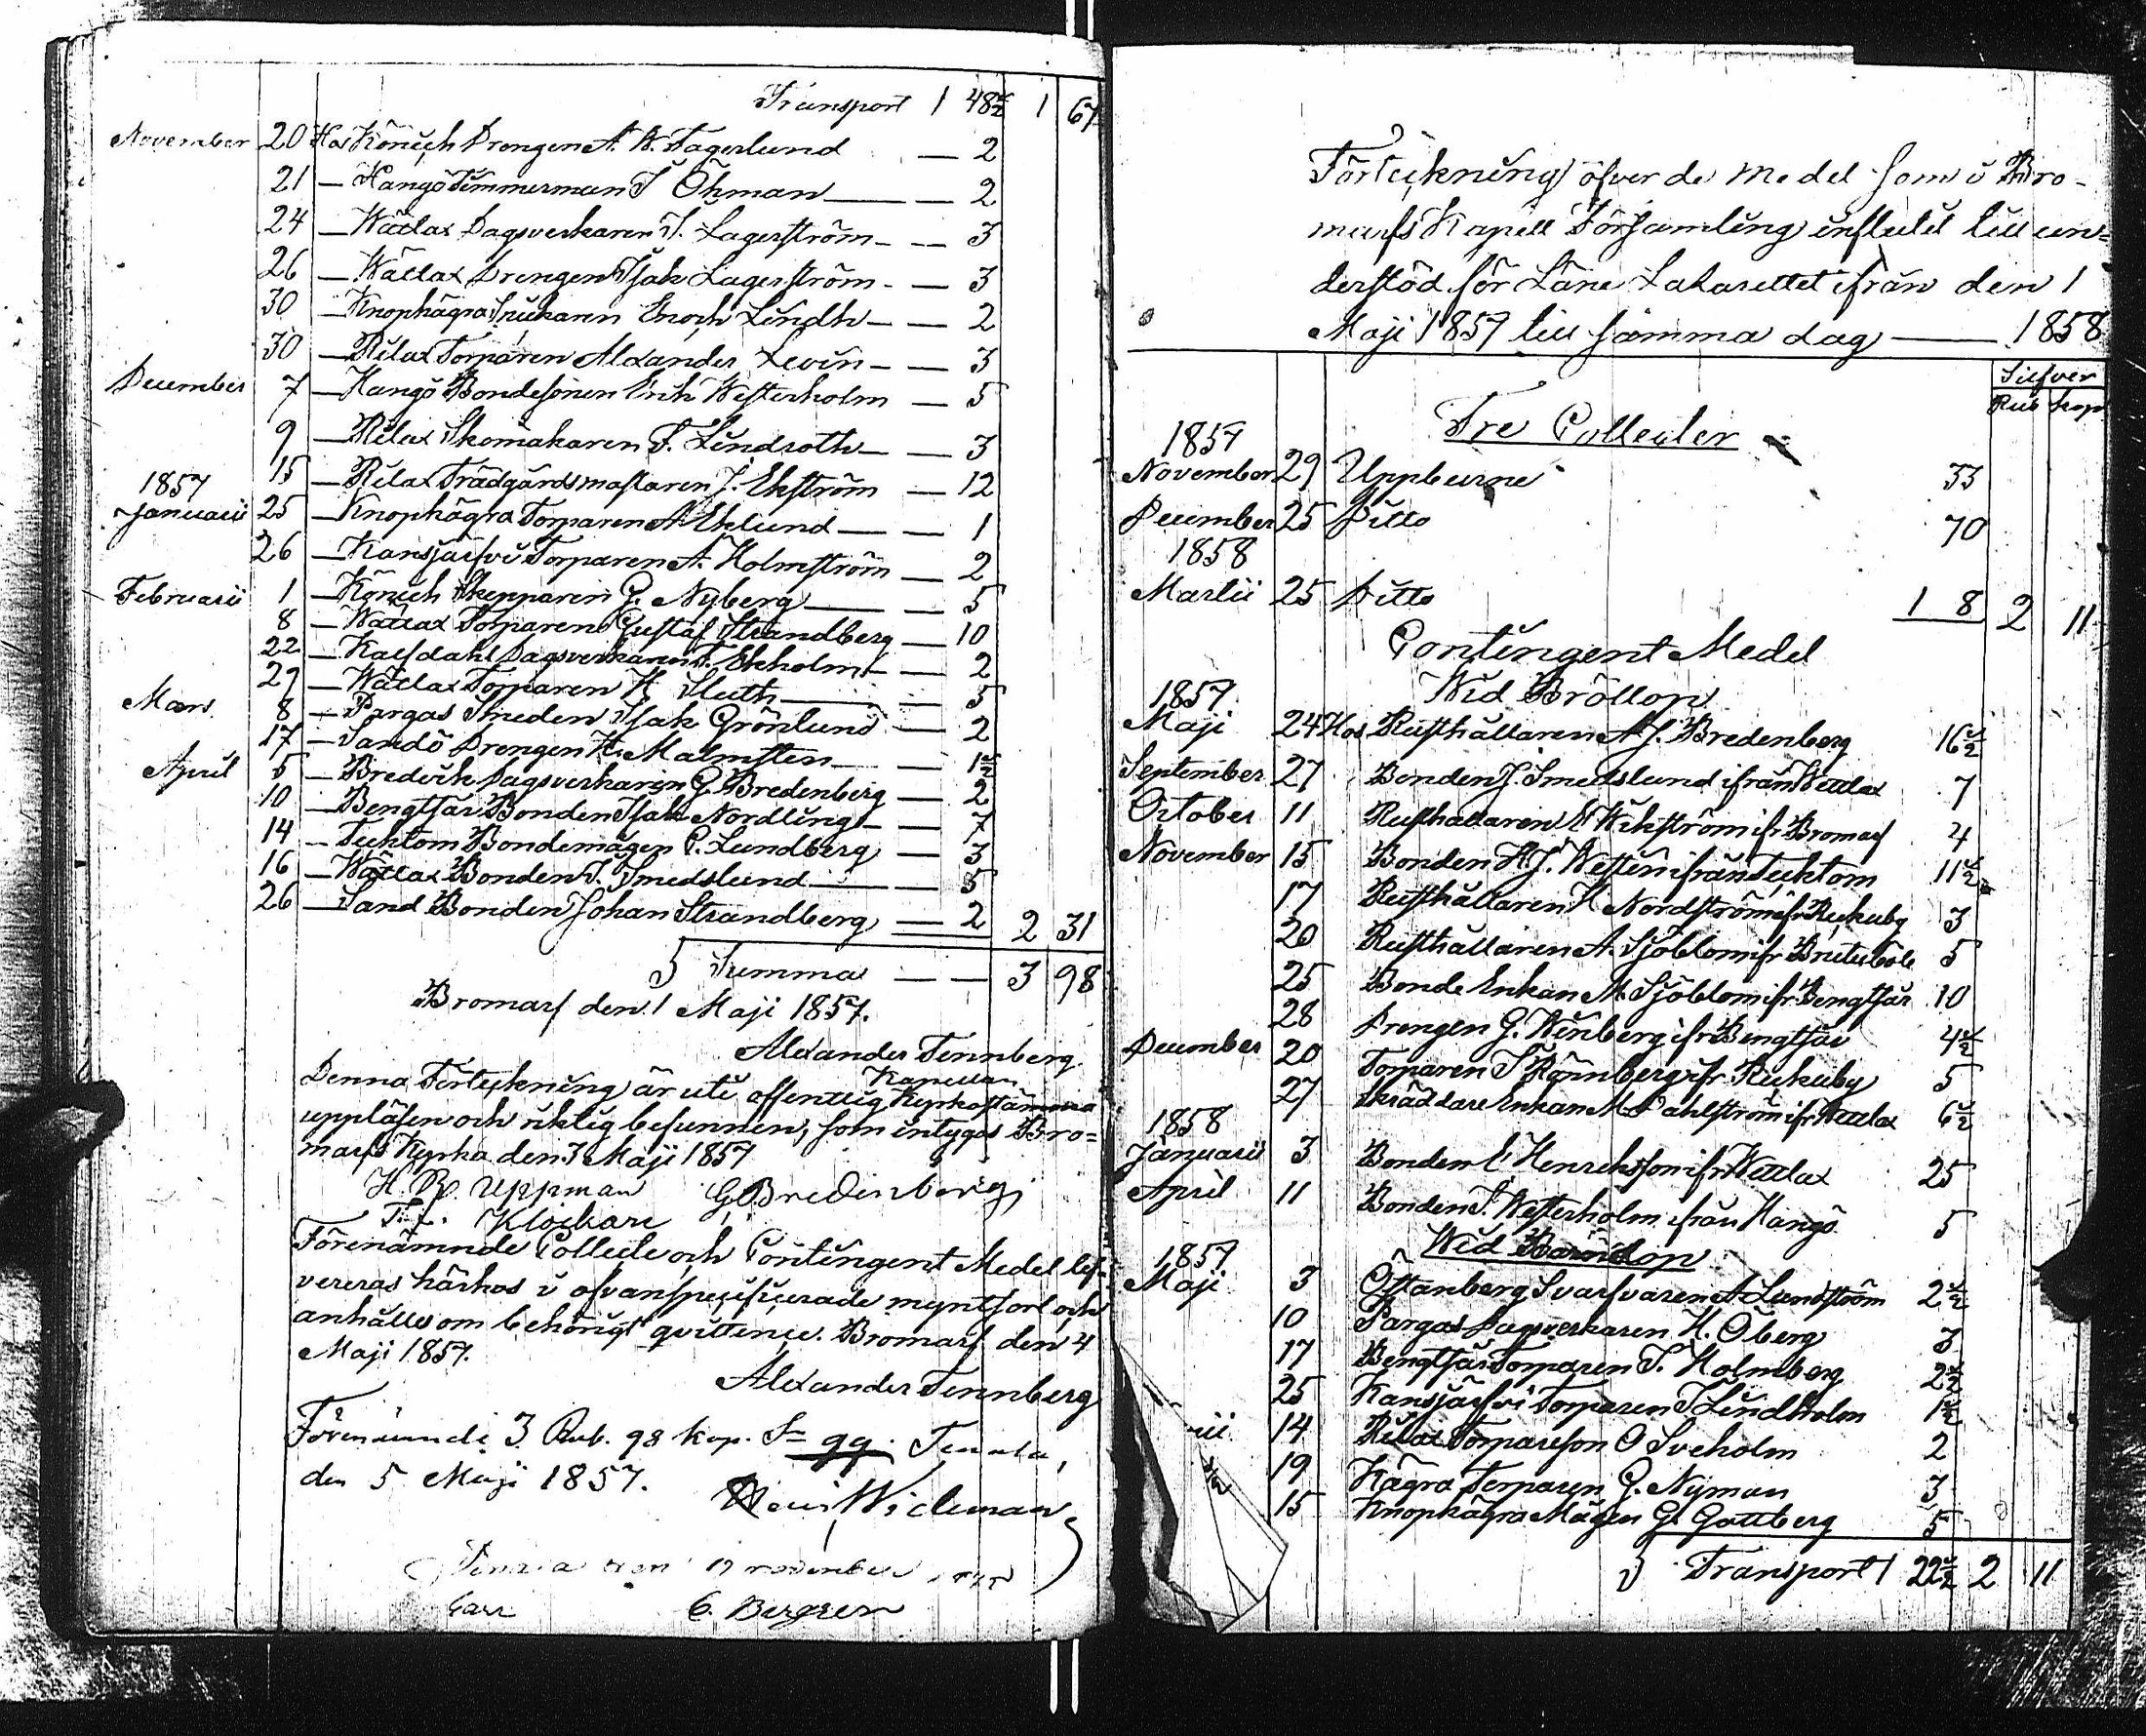 Transport 1 48½ 1 67
November 20 Hos Könick Drengen A. W. Fagerlund — 2
21 — Hangö Timmerman J Öhman — 2
24 — Wättlax Dagsverkaren J. Lagerström — 3
26 — Wättlax Drengen Isak Lagerström — 3
30 — Knophägra Snickaren Enoch Lindh — 2
30 — Rilax Torparen Alexander Levin — 3
December 7 — Hangö Bondesonen Erik Westerholm — 5
9 — Rilax Skomakaren F. Lindroth — 3
15 — Rilax Trädgårdsmästaren J. Ekström — 12
1857
Januarii 25 — Knophägra Torparen A Eklund — 1
26 — Kansjärfvi Torparen A. Holmström — 2
Februarii 1 — Könick Skepparen G. Nyberg — 5
8 — Wättlax Torparen Gustaf Strandberg — 10
22 — Kalfdahl Dagsverkaren F. Ekholm — 2
29 — Wättlax Torparen K Sluth — 5
Mars 8 — Pargas Smeden Isak Grönlund — 2
17 — Sandö Drengen K. Malmsten — 1½
April 5 — Bredvik Dagsverkaren G. Bredenberg — 2
10 — Bengtsår Bonden Isak Nordling — 7
14 — Täcktom Bondemågen C. Lundberg — 3
16 — Wättlax Bonden J. Smedslund — 5
26 — Sand Bonden Johan Strandberg — 2 2 31
S Summa — 3 98
Bromarf den 1 Maji 1857.
Alexander Tennberg
Kapellan
Denna Förteckning är uti offentlig Kyrkostämma
uppläsen och riktig befunnen, som intygas Bro=
marfs Kyrka den 3 Maji 1857
H. R. Uppman G Bredenberg
T. f. Klockare
Förenämnde Collecte och Contingent Medel lef-
vereras härhos i ofvanspecificerade myntsort och
anhålles om behörigt qvittence. Bromarf den 4
Maji 1857.
Alexander Tennberg
Förenämnde 3 Rub. 98 kop. S qq. Tenala,
den 5 Maji 1857.
Wideman
november
C. Bergren
Förteckning öfver de Medel som i Bro-
marfs Kapell Församling influtit till un=
derstöd för Läns Lazarettet ifrån den 1
Maji 1857 till samma dag — 1858
Silfver
Rub kop
Tre Collecter
1857
November 29 Uppburne 33
December 25 Ditto 70
1858
Martii 25 Ditto 1 8 2 11
Contingent Medel
Wid Bröllop
1857
Maji 24 Hos Rusthållaren A J. Bredenberg 16½
September 27 Bonden J. Smedslund ifrån Wettlax 7
October 11 Rusthållaren E Wikström ifr Bromarf 4
November 15 Bonden A J. Westén ifrån Täcktom 11½
17 Rusthållaren K Nordström ifr Rickuby 3
20 Rusthållaren A. Sjöblom ifr Brutubole 5
25 Bonde Enkan M. Sjöblom ifr Bengtsår 10
28 Drengen G. Winberg ifr Bengtsår 4½
December 20 Torparen J Rönnberg ifr Rickuby 5
27 Skräddare Enkan M Dahlström ifr Wettlax 6½
1858
Januarii 3 Bonden E Henriksson ifr Wettlax 25
April 11 Bonden J. Westerholm ifrån Hangö 5
Wid Barndop
1857
Maji 3 Östanberg Svarfvaren A Lundström 2½
10 Pargas Dagsverkaren H. Öberg 3
17 Bengtsår Torparen J. Holmberg 2½
25 Kansjärfvi Torparen J Lindholm 1½
ii 14 Rilax Torpareson O Sveholm 2
19 Hägra Torparen G. Nyman 3
15 Knophägra Mågen G. Gottberg 5
Transport 1 22½ 2 11